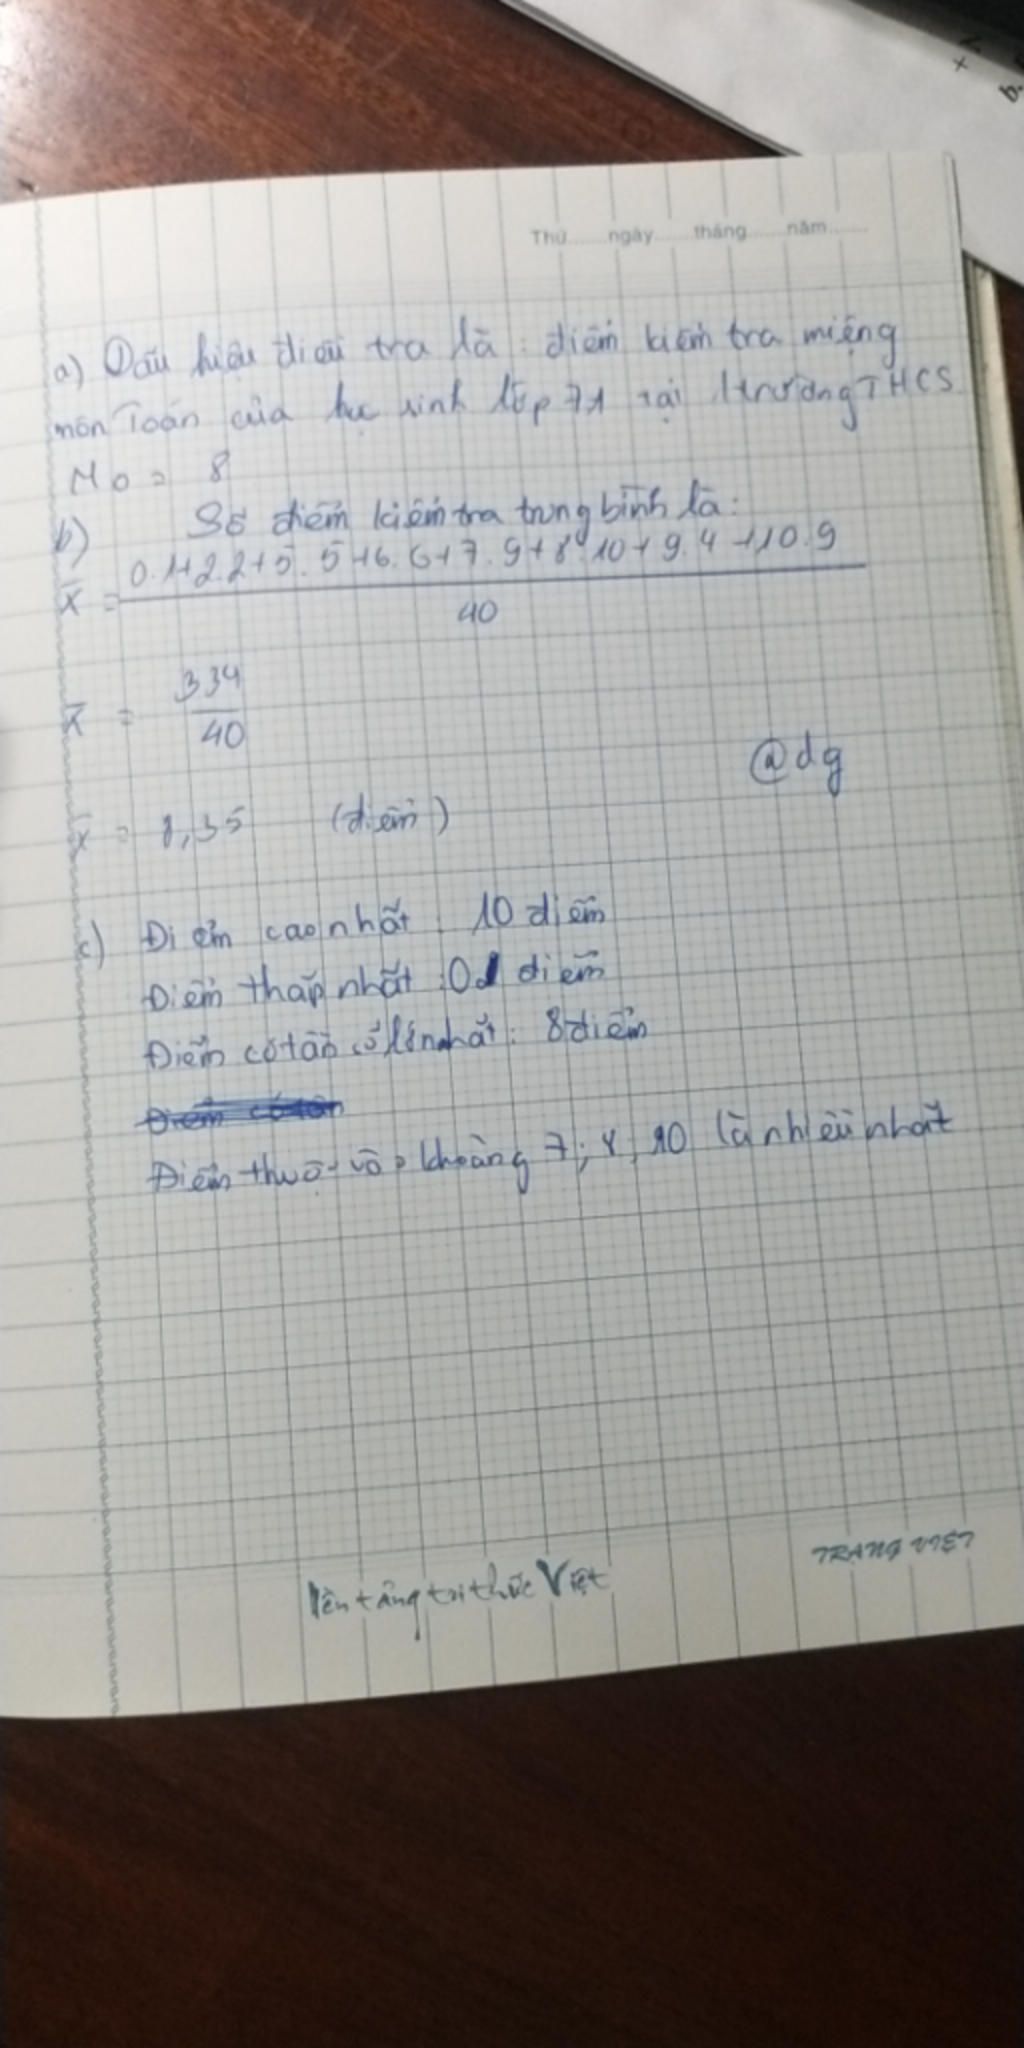 Thứ......ngày......tháng......năm......
a) Dấu hiệu điều tra là : điểm kiểm tra miệng
môn Toán của học sinh lớp 7A tại 1 trường THCS
Mo = 8
b) Số điểm kiểm tra trung bình là:
x̄ = 0.1+2.2+5.5+6.6+7.9+8.10+9.4+10.9
40
x̄ = 334
40
@dg
x̄ = 8,35 (điểm)
c) Điểm cao nhất : 10 điểm
Điểm thấp nhất : 0 điểm
Điểm có tần số lớn nhất : 8 điểm
Điểm thuộc vào khoảng 7; 8; 10 là nhiều nhất
TRANG VIỆT
Nền tảng tri thức Việt